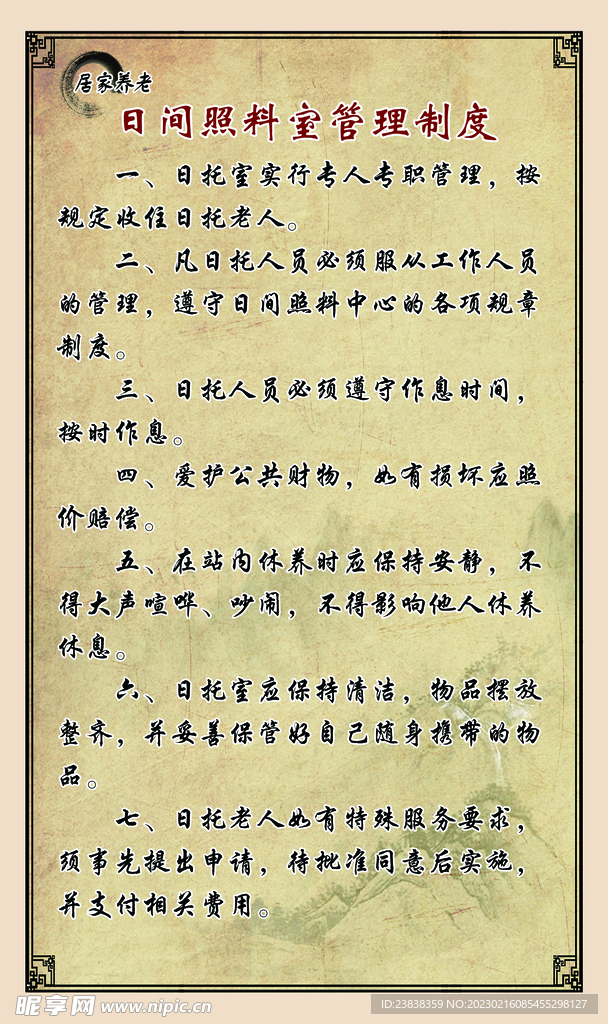 居家养老
日间照料室管理制度
一、日托室实行专人专职管理，按
规定收住日托老人。
二、凡日托人员必须服从工作人员
的管理，遵守日间照料中心的各项规章
制度。
三、日托人员必须遵守作息时间，
按时作息。
四、爱护公共财物，如有损坏应照
价赔偿。
五、在站内休养时应保持安静，不
得大声喧哗、吵闹，不得影响他人休养
休息。
六、日托室应保持清洁，物品摆放
整齐，并妥善保管好自己随身携带的物
品。
七、日托老人如有特殊服务要求，
须事先提出申请，待批准同意后实施，
并支付相关费用。
昵享网 www.nipic.cn
ID:23838359 NO:20230216085455298127